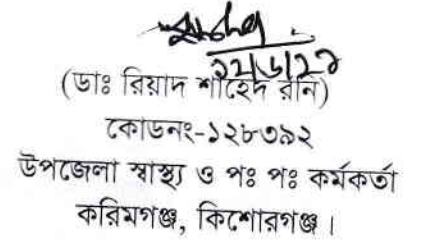 ১২/৬/২১
(ডাঃ রিয়াদ শাহেদ রনি)
কোডনং-১২৮৩৯২
উপজেলা স্বাস্থ্য ও পঃ পঃ কর্মকর্তা
করিমগঞ্জ, কিশোরগঞ্জ।